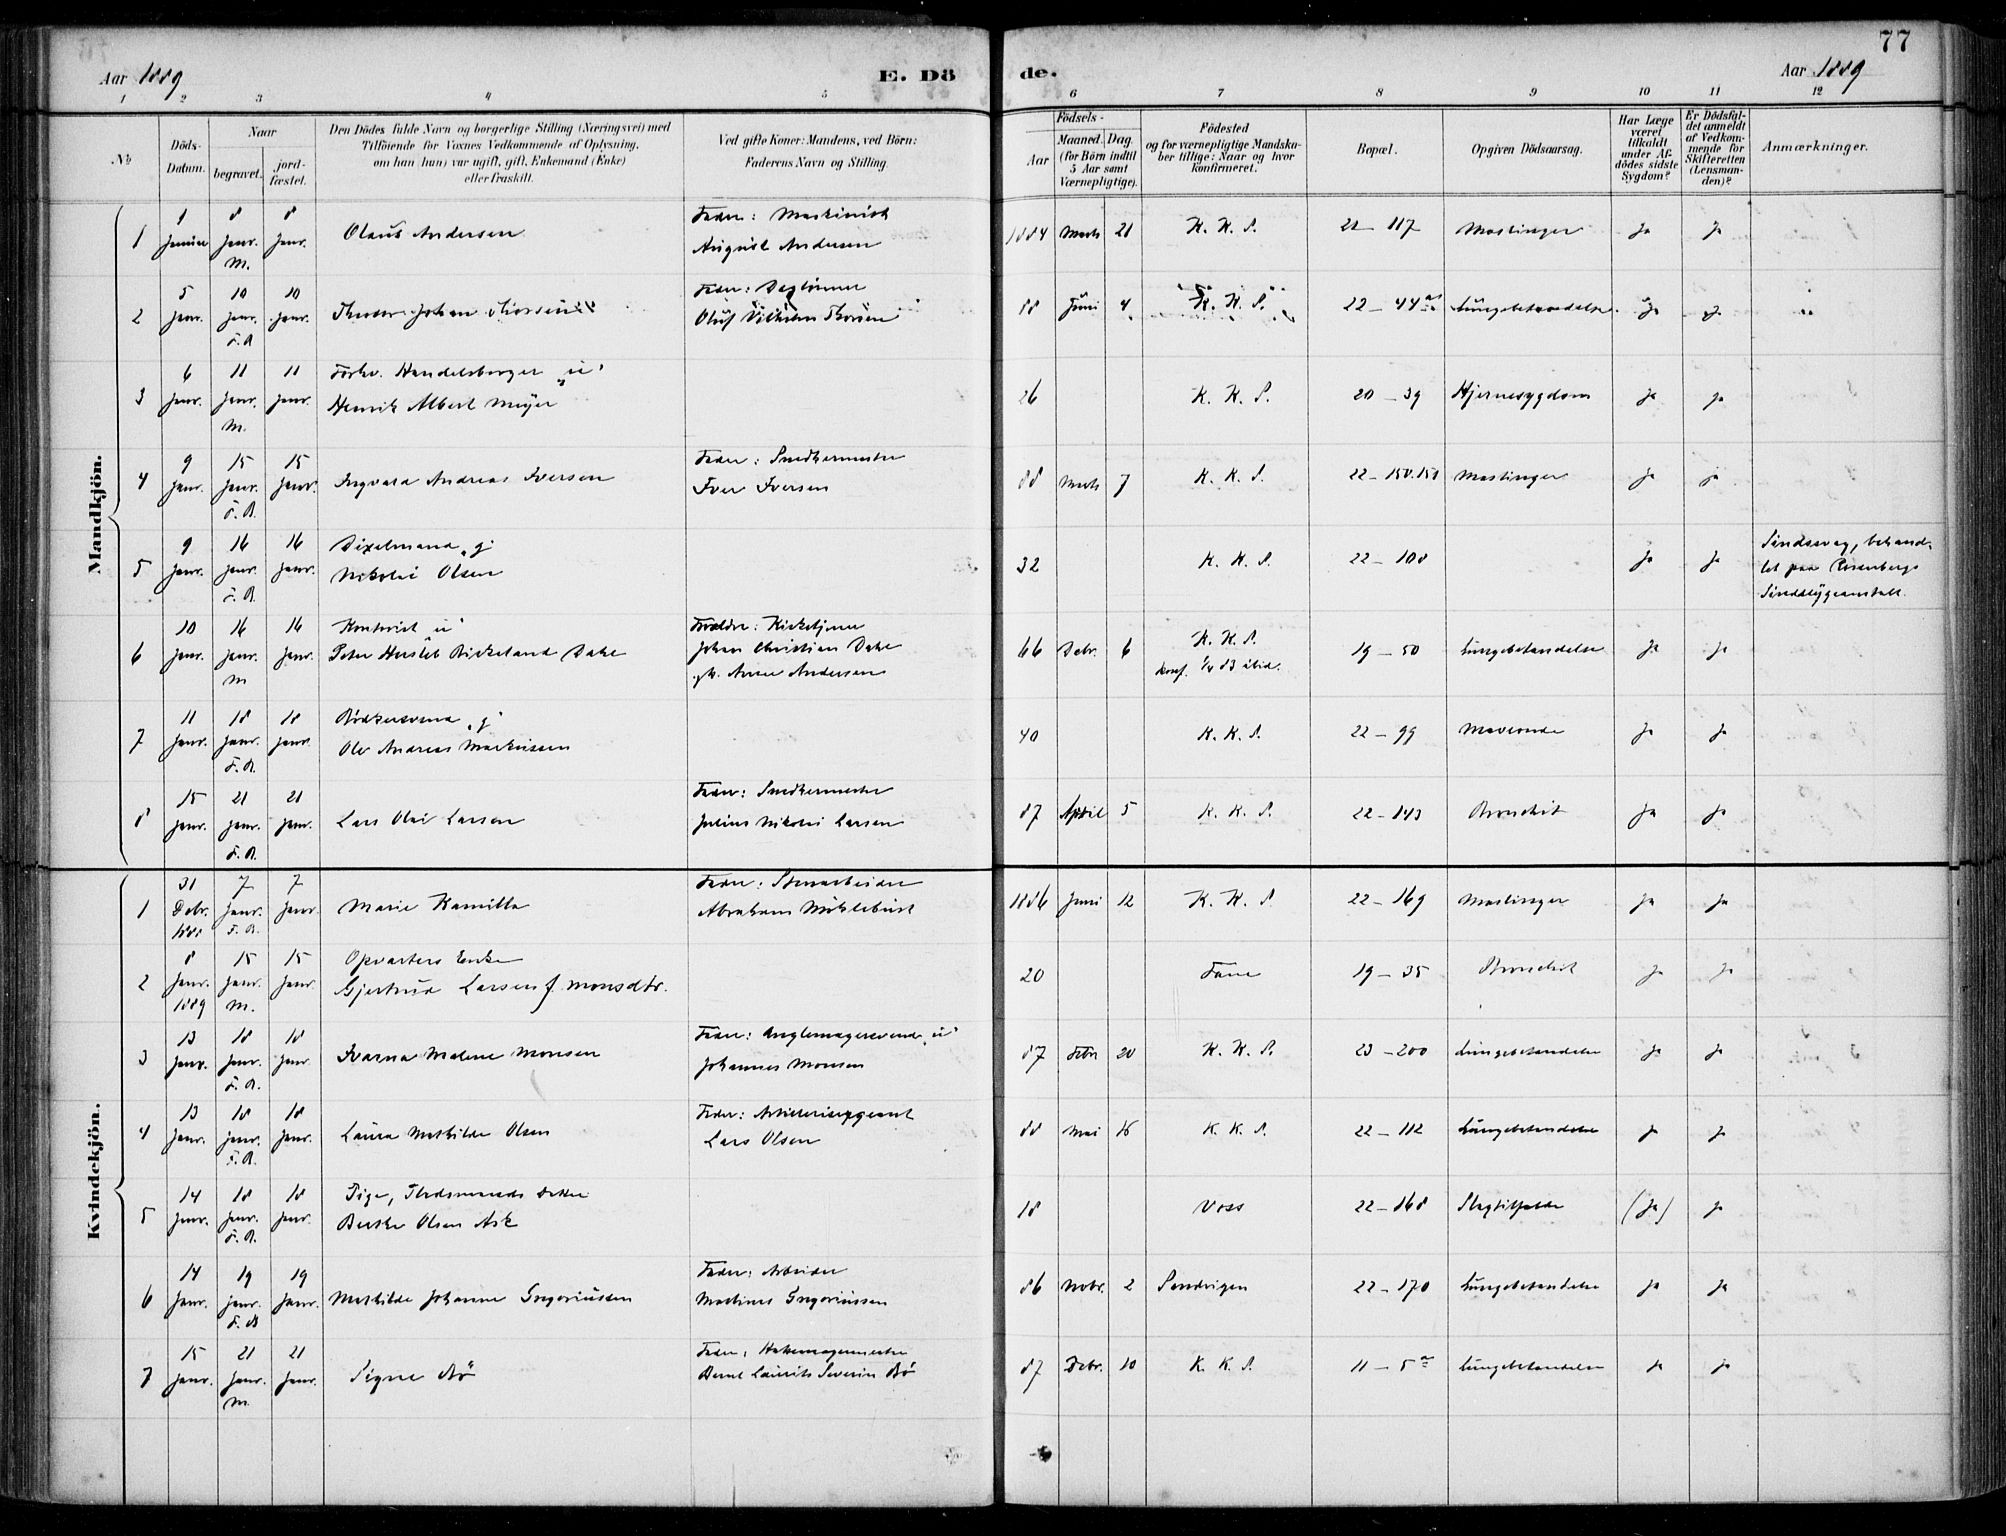 77
Aar 1889
E. Dö
de.
Aar 1889
1 2 3 4 5 6 7 8 9 10 11 12
No
Döds-Datum.
Naar
begravet.
jord-fæstet.
Den Dödes fulde Navn og borgerlige Stilling (Næringsvei) med
Tilföiende for Voxnes Vedkommende af Oplysning,
om han (hun) var ugift, gift, Enkemand (Enke)
eller fraskilt.
Ved gifte Koner: Mandens, ved Börn:
Faderens Navn og Stilling.
Födsels-
Aar
Maaned.
Dag.
(for Börn indtil
5 Aar samt
Værnepligtige).
Födested
og for værnepligtige Mandska-
ber tillige: Naar og hvor
konfirmeret.
Bopæl.
Opgiven Dödsaarsag.
Har Læge
været
tilkaldt
under Af-
dödes sidste
Sygdom?
Er Dödsfal-
det anmeldt
af Vedkom-
mende for
Skifteretten
(Lensman-
den)?
Anmærkninger.
Mandkjön.
1 1 Januar 8 Janr. M. 8 Janr. Olaus Andersen Fader: Maskinist August Andersen 1884 Marts 21 K. K. S. 22 – 117 Mæslinger Ja Ja
2 5 Janr. 10 Janr. 10 Janr. Johan Thorsen Fader: Dagl. Oluf Vilhelm Thorsen 88 Juni 4 K. K. S. 22 – 44 Lungebetændelse Ja Ja
3 6 Janr. 11 Janr. M. 11 Janr. Forhv. Handelsborger "u" Henrik Albert Meyer 26 K. K. S. 20 – 39 Hjernesygdom Ja Ja
4 9 Janr. 15 Janr. 15 Janr. Ingvald Andreas Iversen Fader: Snedkermester Iver Iversen 88 Marts 7 K. K. S. 22 – 150.151 Mæslinger Ja Ja
5 9 Janr. 16 Janr. 16 Janr. "g" Nikolai Olsen 32 K. K. S. 22 – 108 Ja Ja Sindssvag, behand-
let paa Rosenbergs
Sindssygeanstalt.
6 10 Janr. 16 Janr. M 16 Janr. Kontorist "u" Peter Herslib Birkeland Dahe Forældre: Kirketjener Johan Christian Dahe Andersen 66 Debr. 6 K. K. S. konf. ibid. 19 – 50 Lungebetændelse Ja Ja
7 11 Janr. 18 Janr. 18 Janr. Bødkersvend "g" Ole Andreas Markussen 40 K. K. S. 22 – 99 Maveonde Ja Ja
8 15 Janr. 21 Janr. 21 Janr. Lars Olai Larsen Fader: Snedkermester Julius Nikolai Larsen 87 April 5 K. K. S. 22 – 143 Bronchit Ja Ja
Kvindekjön.
1 31 Debr. 1888 7 Janr. 7 Janr. Marie Kamilla Fader: Stenarbeider Abraham Myklebust 1886 Juni 12 K. K. S. 22 – 169 Mæslinger Ja Ja
2 8 Janr. 1889 15 Janr. M. 15 Janr. Opvarters Enke Gjertrud Larsen f. Monsdtr. 20 Fane 19 – 35 Bronchit Ja Ja
3 13 Janr. 18 Janr. 18 Janr. Ivarna Malene Monsen Fader: "u" Johannes Monsen 87 Febr 20 K. K. S. 23 – 200 Lungebetændelse Ja Ja
4 13 Janr. 18 Janr. 18 Janr. Laura Mathilde Olsen Fader: Artillerisergeant Lars Olsen 88 Mai 16 K. K. S. 22 – 112 Lungebetændelse Ja Ja
5 14 Janr. 18 Janr. 18 Janr. Pige, Olsen Ask 18 Voss 22 – 168 Slagtilfælde (Ja) Ja
6 14 Janr. 19 Janr. 19 Janr. Mathilde Johanne Gregoriussen Fader: Arbeider Martinus Gregoriussen 86 Novbr. 2 Sandvigen 22 – 170 Lungebetændelse Ja Ja
7 15 Janr. 21 Janr. M. 21 Janr. Signe Bø Fader: Bernt Laurits Severin Bø 87 Debr. 10 K. K. S. 11 – 5 Lungebetændelse Ja Ja